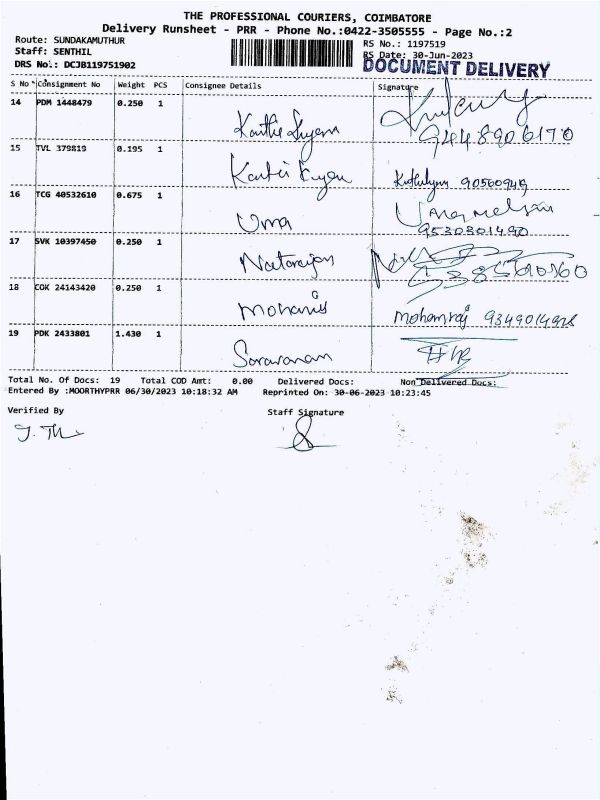 THE PROFESSIONAL COURIERS, COIMBATORE
Delivery Runsheet - PRR - Phone No.:0422-3505555 - Page No.:2
Route: SUNDAKAMUTHUR
RS No.: 1197519
Staff: SENTHIL
RS Date: 30-Jun-2023
DRS No.: DCJB119751902
DOCUMENT DELIVERY
S No Consignment No Weight PCS Consignee Details Signature
14 PDM 1448479 0.250 1
9448906170
15 TVL 379819 0.195 1
16 TCG 40532610 0.675 1
Uma
9530301490
17 SVK 10397450 0.250 1
Natarajan
18 COK 24143420 0.250 1
Mohanraj 9349014928
19 PDK 2433801 1.430 1
Saravanan
Total No. Of Docs: 19 Total COD Amt: 0.00 Delivered Docs: Non Delivered Docs:
Entered By :MOORTHYPRR 06/30/2023 10:18:32 AM Reprinted On: 30-06-2023 10:23:45
Verified By Staff Signature